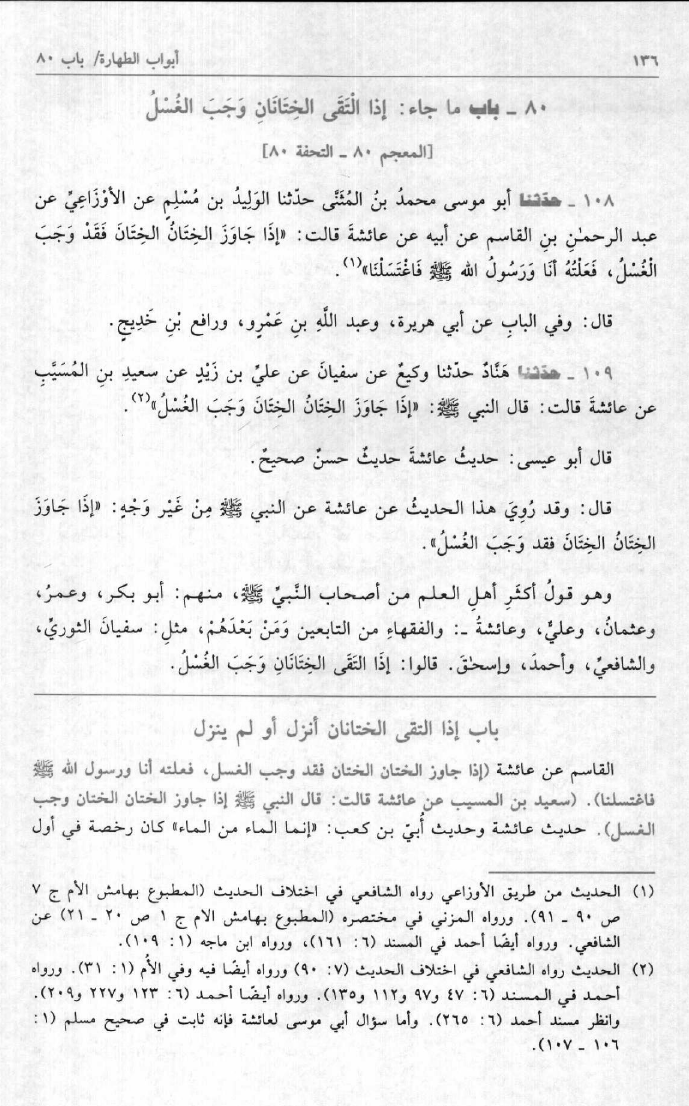 ١٣٦ أبواب الطهارة/ باب ٨٠
٨٠ ـ باب ما جاء: إذا الْتَقَى الخِتَانَانِ وَجَبَ الغُسْلُ
[المعجم ٨٠ ـ التحفة ٨٠]
١٠٨ ـ حدّثنا أبو موسى محمدُ بنُ المُثَنَّى حدّثنا الوَلِيدُ بن مُسْلِمٍ عن الأوْزَاعِيِّ عن
عبد الرحمٰنِ بنِ القاسم عن أبيه عن عائشةَ قالت: «إذَا جَاوَزَ الخِتَانُ الخِتَانَ فَقَدْ وَجَبَ
الْغُسْلُ، فَعَلْتُهُ أنَا وَرَسُولُ الله ﷺ فَاغْتَسَلْنَا»(١).
قال: وفي البابِ عن أبي هريرة، وعبد اللَّهِ بنِ عَمْرٍو، ورافع بْنِ خَدِيجٍ.
١٠٩ ـ حدّثنا هَنَّادٌ حدّثنا وكيعٌ عن سفيانَ عن عليِّ بن زَيْدٍ عن سعيدِ بنِ المُسَيَّبِ
عن عائشةَ قالت: قال النبي ﷺ: «إذَا جَاوَزَ الخِتَانُ الخِتَانَ وَجَبَ الغُسْلُ»(٢).
قال أبو عيسى: حديثُ عائشةَ حديثٌ حسنٌ صحيحٌ.
قال: وقد رُوِيَ هذا الحديثُ عن عائشة عن النبي ﷺ مِنْ غَيْر وَجْهٍ: «إذَا جَاوَزَ
الخِتَانُ الخِتَانَ فقد وَجَبَ الغُسْلُ».
وهو قولُ أكثَرِ أهلِ العلم من أصحاب النَّبيِّ ﷺ، منهم: أبو بكر، وعمرُ،
وعثمانُ، وعليٌّ، وعائشةُ ـ: والفقهاءِ من التابعين وَمَنْ بَعْدَهُمْ، مثلِ: سفيانَ الثوريِّ،
والشافعيِّ، وأحمدَ، وإسحٰقَ. قالوا: إذَا التَقَى الخِتَانَانِ وَجَبَ الغُسْلُ.
باب إذا التقى الختانان أنزل أو لم ينزل
القاسم عن عائشة (إذا جاوز الختان الختان فقد وجب الغسل، فعلته أنا ورسول الله ﷺ
فاغتسلنا). (سعيد بن المسيب عن عائشة قالت: قال النبي ﷺ إذا جاوز الختان الختان وجب
الغسل). حديث عائشة وحديث أُبيّ بن كعب: «إنما الماء من الماء» كان رخصة في أول
(١) الحديث من طريق الأوزاعي رواه الشافعي في اختلاف الحديث (المطبوع بهامش الأم ج ٧
ص ٩٠ ـ ٩١). ورواه المزني في مختصره (المطبوع بهامش الام ج ١ ص ٢٠ ـ ٢١) عن
الشافعي. ورواه أيضًا أحمد في المسند (٦: ١٦١)، ورواه ابن ماجه (١: ١٠٩).
(٢) الحديث رواه الشافعي في اختلاف الحديث (٧: ٩٠) ورواه أيضًا فيه وفي الأُم (١: ٣١). ورواه
أحمد في المسند (٦: ٤٧ و٩٧ و١١٢ و١٣٥). ورواه أيضًا أحمد (٦: ١٢٣ و٢٢٧ و٢٠٩).
وانظر مسند أحمد (٦: ٢٦٥). وأما سؤال أبي موسى لعائشة فإنه ثابت في صحيح مسلم (١:
١٠٦ ـ ١٠٧).